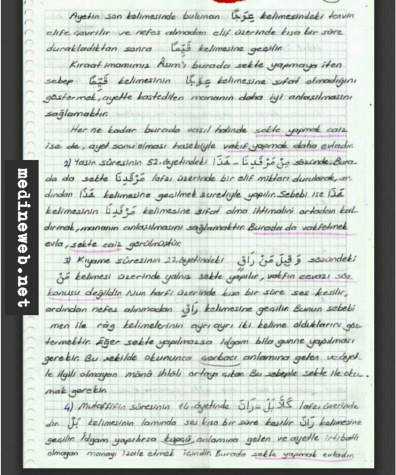 Ayetin son kelimesinde bulunan عِوَجًا kelimesindeki tenvin
elife çevrilir ve nefes almadan elif üzerinde kısa bir süre
durakladıktan sonra قَيِّمًا kelimesine geçilir.
Kıraat imamımız Asım'ı burada sekte yapmaya iten
sebep قَيِّمًا kelimesinin عِوَجًا kelimesine sıfat olmadığını
göstermek, ayette kastedilen mananın daha iyi anlaşılmasını
sağlamaktır.
Her ne kadar burada vasıl halinde sekte yapmak caiz
ise de, ayet sonu olması hasebiyle vakıf yapmak daha evladır.
2) Yasin sûresinin 52. âyetindeki مِنْ مَرْقَدِنَا - هَذَا sözünde. Bura-
da da sekte مَرْقَدِنَا lafzı üzerinde bir elif miktarı durularak, ar-
dından هَذَا kelimesine geçilmek suretiyle yapılır. Sebebi ise هَذَا
kelimesinin مَرْقَدِنَا kelimesine sıfat olma ihtimalini ortadan kal-
dırmak, mananın anlaşılmasını sağlamaktır. Burada da vakfetmek
evla, sekte caiz görülmüştür.
3) Kıyame sûresinin 27. âyetindeki وَقِيلَ مَنْ رَاقٍ sözündeki
مَنْ kelimesi üzerinde yalnız sekte yapılır, vakfın cevazı söz
konusu değildir. Nun harfi üzerinde kısa bir süre ses kesilir,
ardından nefes alınmadan رَاقٍ kelimesine geçilir. Bunun sebebi
men ile râg kelimelerinin ayrı ayrı iki kelime olduklarını gös-
termektir. Eğer sekte yapılmazsa idgam bila gunne yapılması
gerekir. Bu şekilde okununca çorbacı anlamına gelen ve âyet-
le ilgili olmayan mânâ ihlâli ortaya çıkar. Bu sebeple sekte ile oku-
mak gerekir.
4) Mutaffifîn sûresinin 14. âyetinde كَلَّا بَلْ - رَانَ lafzı üzerinde
dir. بَلْ kelimesinin lamında ses kısa bir süre kesilir رَانَ kelimesine
geçilir. İdgam yapılırsa anlamına gelen ve ayetle irtibatlı
olmayan manayı izale etmek içindir. Burada sekte yapmak evladır.
medineweb.net